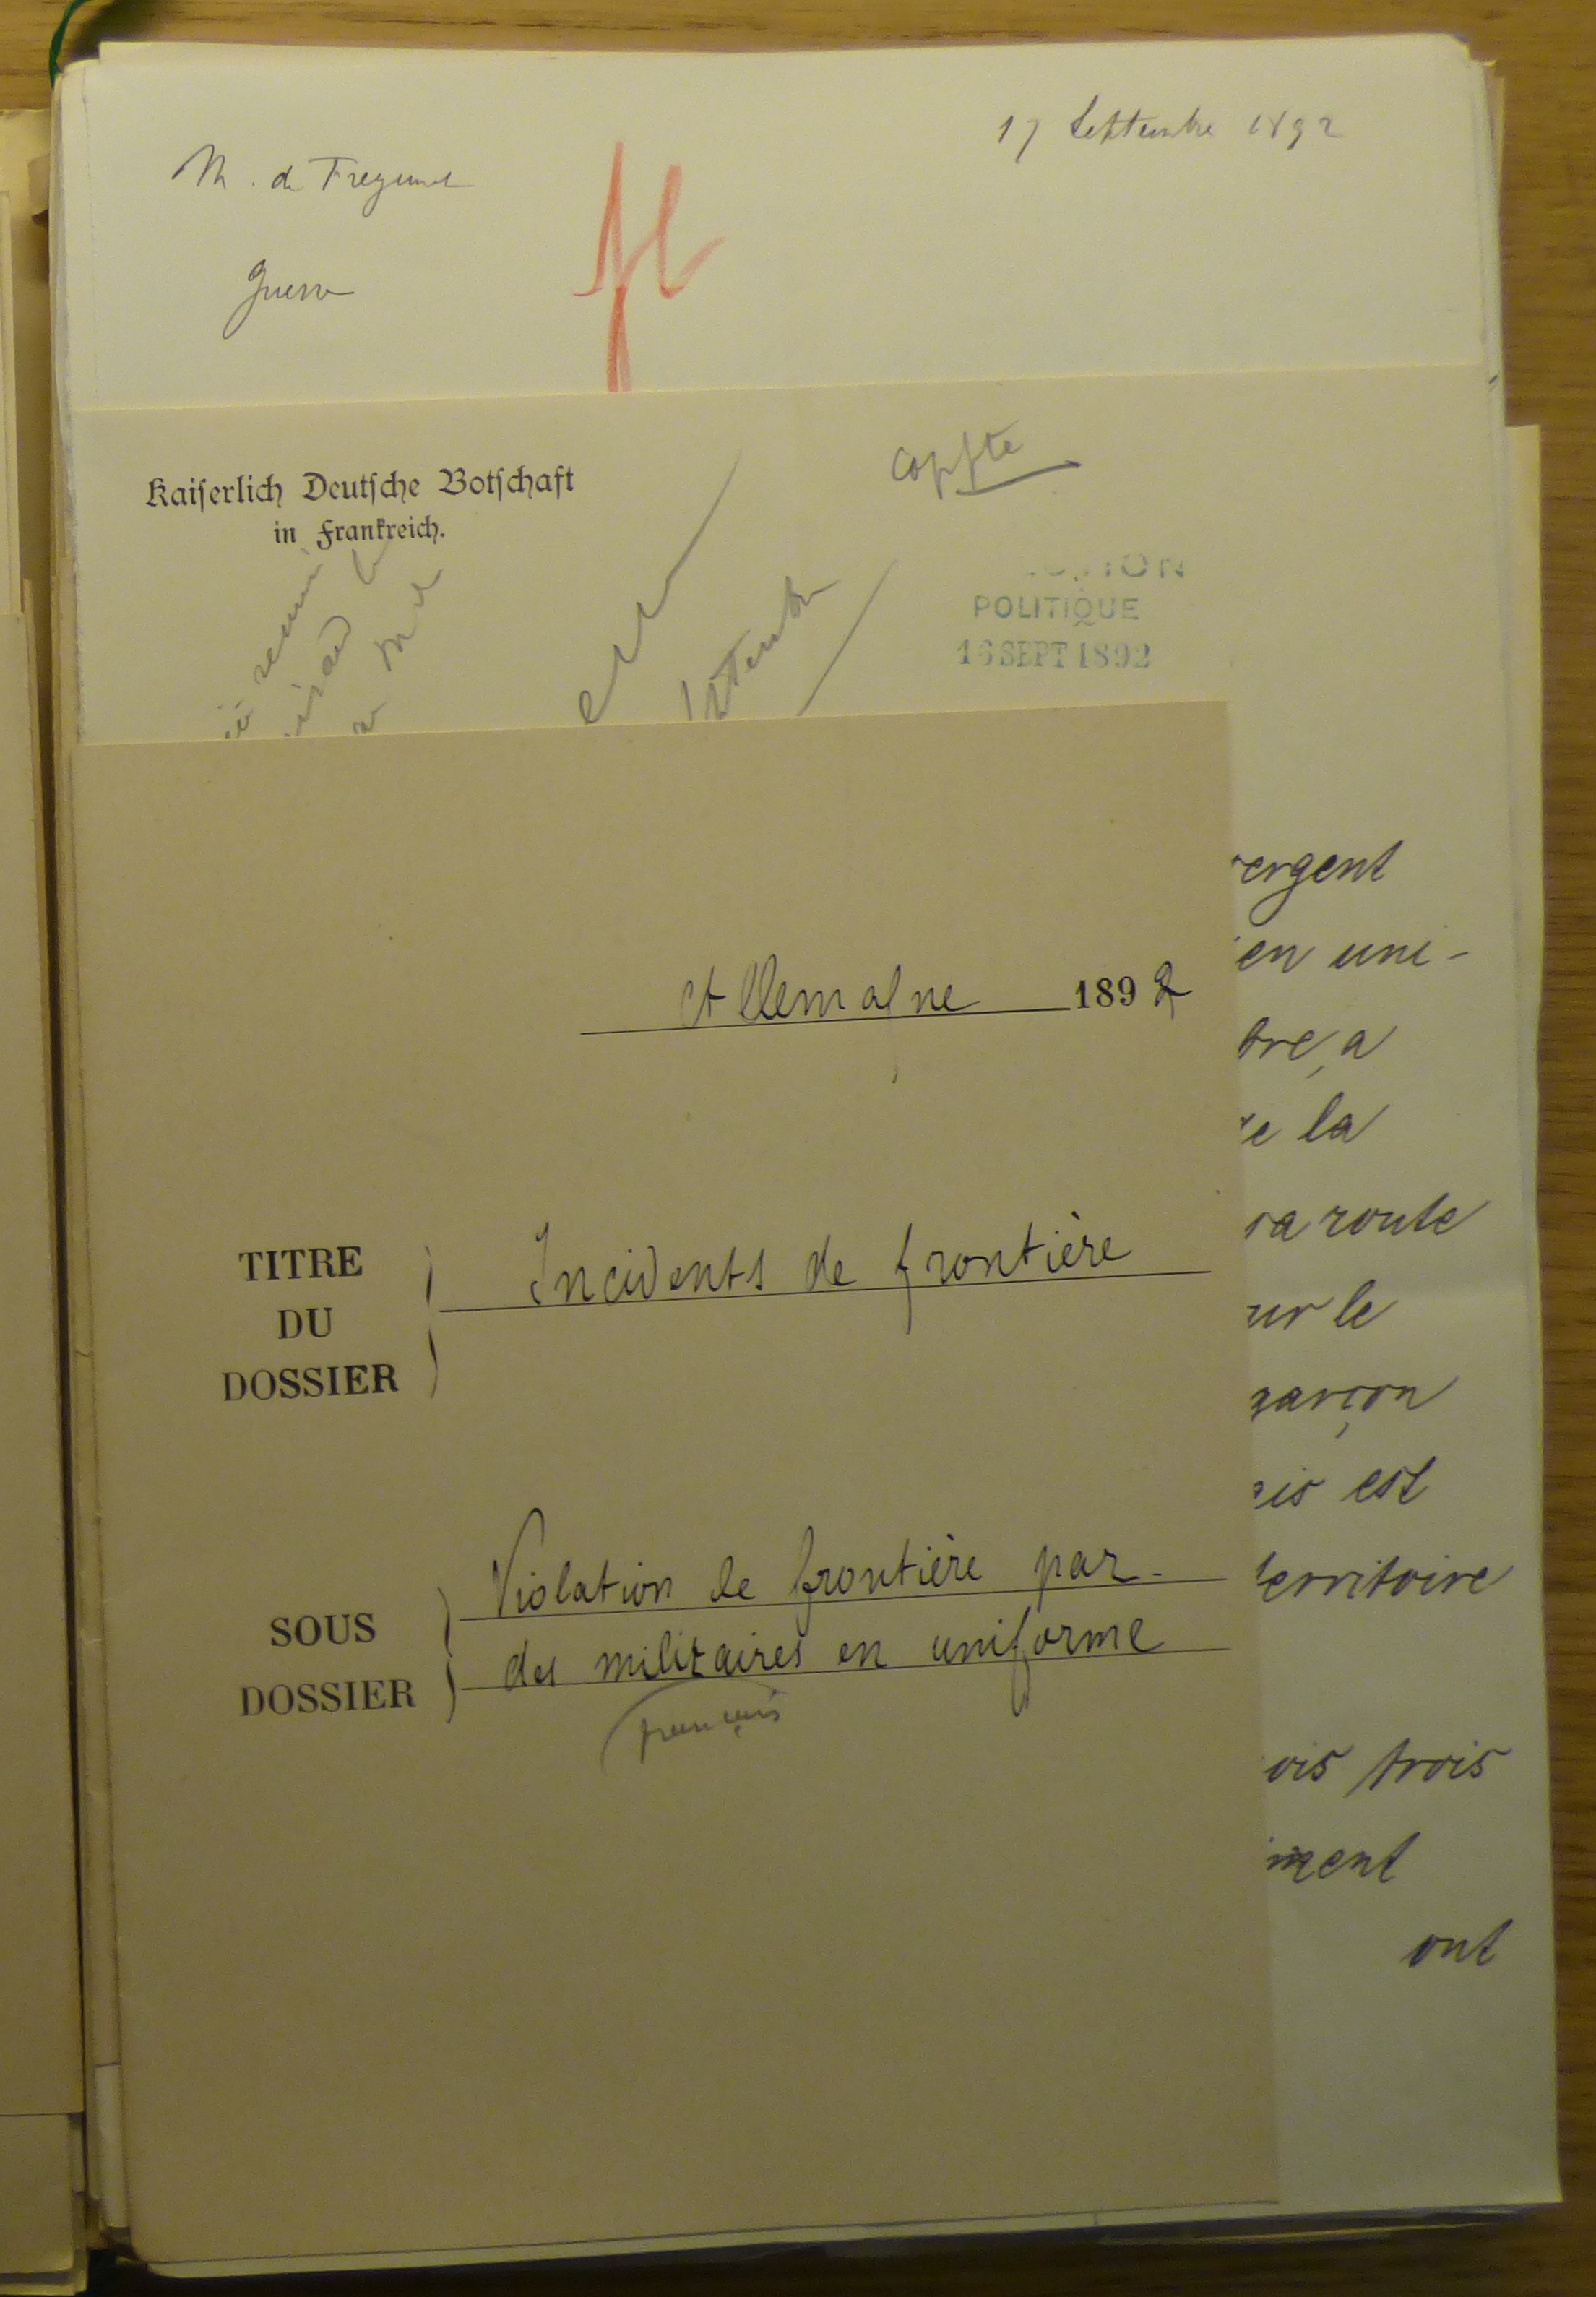 17 Septembre 1892
M. de Freycinet
Guerre
Kaiserlich Deutsche Botschaft
in Frankreich.
POLITIQUE
16 SEPT 1892
Allemagne 1892
TITRE
DU
DOSSIER
Incidents de frontière
SOUS
DOSSIER
Violation de frontière par
des militaires en uniforme
français
ergent
en uni-
bre, a
la
sa route
ur le
garçon
est
territoire
ois trois
ment
ont